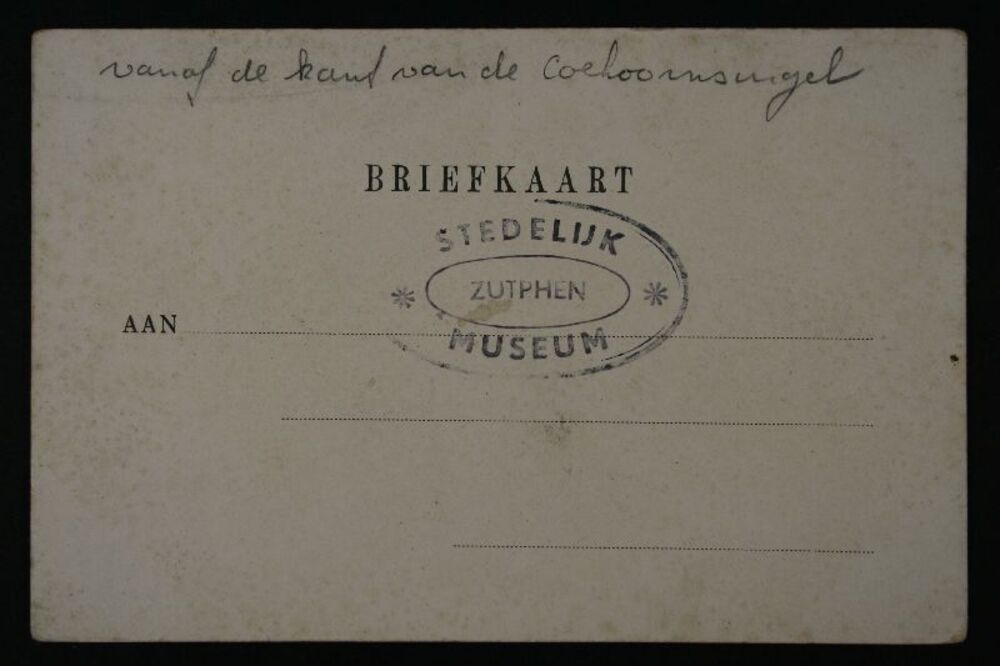 vanaf de kant van de Coehoornsingel
BRIEFKAART
STEDELIJK
ZUTPHEN
MUSEUM
AAN